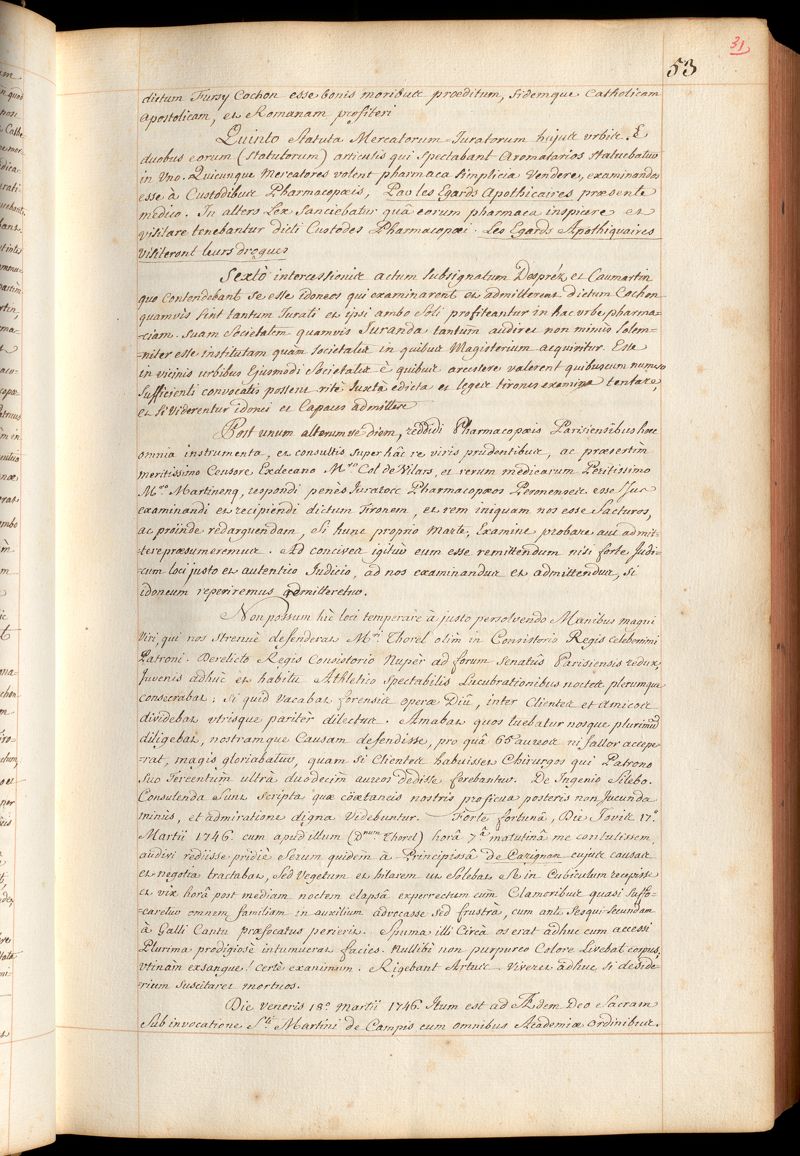 31
53
dictum Fursy Cochon esse bonis moribus præditum, fidemque Catholicam
Apostolicam, et Romanam profiteri
Quinto Statuta Mercatorum Juratorum hujus urbis. E
duobus eorum (statutorum) articulis qui Spectabant Aromatarios statuebatur
in Uno. Quicunque Mercatores volent pharmaca simplicia Vendere, examinandos
esse à Custodibus Pharmacopæis, Par les Egards Apothicaires præsente
medico. In altero Lex Sanciebatur quâ eorum pharmaca inspicere et
visitare tenebantur dicti Custodes Pharmacopæi. Les Egards Apothiquaires
visiteront leurs drogues
Sexto intercessionis actum subsignatum Despréz et Caumartin
quo contendebant se esse idoneos qui examinarent et admitterent dictum Cochon
quamvis sint tantum Jurati et ipsi ambo Soli profiteantur in hac urbe pharma-
-ciam. Suam Societatem quamvis Juranda tantum audiret non minus Solem-
-niter esse institutam quam Societates in quibus Magisterium acquiritur. Esse
in vicinis urbibus Ejusmodi Societates è quibus arcessere valerent quibuscum numero
Sufficienti convocatis possent ritè Juxtà edicta et leges tirones examine tentare,
et si Viderentur idonei et Capaces admittere
Post unum alterumve diem, reddidi Pharmacopæis Parisiensibus hæc
omnia instrumenta, et consultis super hâc re viris prudentibus, ac præsertim
meritissimo Censore Exdecano M.ro Col de Vilars, et rerum medicarum Peritissimo
M.ro Martinenq, respondi penès Juratos Pharmacopæos Permenses esse Jus
examinandi et recipiendi dictum Tironem, et rem iniquam nos esse facturos,
ac proinde redarguendam, Si hunc proprio Marte, Examine probare aut admit-
-tere præsumeremus. Ad concives igitur eum esse remittendum nisi forte Judi-
-cum loci justo et autentico Judicio, ad nos examinandus et admittendus, si
idoneum reperiremus admitteretur.
Non possum hîc loci temperare à justo persolvendo Manibus magni
Viri, qui nos strenuè defenderat M.ri Thorel olim in Consistorio Regis celeberrimi
Patroni. Derelicto Regis Consistorio Nuper ad forum Senatûs Parisiensis redux,
Juvenis adhuc et habitu Athletico Spectabilis Lucubrationibus noctes plerumque
consecrabat; Si quid vacabat forensis operæ Diû, inter Clientes et amicos
dividebat utrisque pariter dilectus. Amabat quos tuebatur nosque plurimùm
diligebat, nostramque Causam defendisse, pro quâ 65 aureos ni fallor accepe-
-rat, magis gloriabatur, quam si Clientes habuisset Chirurgos qui Patrono
Suo Tercentum ultrà duodecim aureos dedisse ferebantur. De Ingenio Silebo.
Consulenda Sunt scripta quæ coætaneis nostris proficua posteris non Jucunda
minùs, et admiratione digna Videbuntur. Forte fortunâ, Die Jovis 17.a
Martii 1746. cum apud illum (D.num Thorel) horâ 7.â matutinâ me contulissem,
audivi rediisse pridiè Serum quidem à Principissâ de Carignan cujus causas
et negotia tractabat, Sed Vegetum et hilarem ut Solebat Se in Cubiculum recepisse
et vix horâ post mediam noctem elapsâ experrectum cum Clamoribus quasi suffo-
-caretur omnem familiam in auxilium advocasse Sed frustrà, cum ante Sesqui-Secundam
à Galli Cantu præfocatus perierit. Spuma illi Circà os erat adhuc cum accessi
Plurima prodigiosè intumuerat facies. Nullibi non purpureo Colore Livebat corpus,
Utinam exsangue! Certè exanimum. Rigebant Artus. Viveret adhuc si deside-
rium suscitaret mortuos.
Die veneris 18.a Martii 1746. Itum est ad Ædem Deo Sacram
Sub invocatione S.ti Martini de Campis cum omnibus Academiæ Ordinibus.